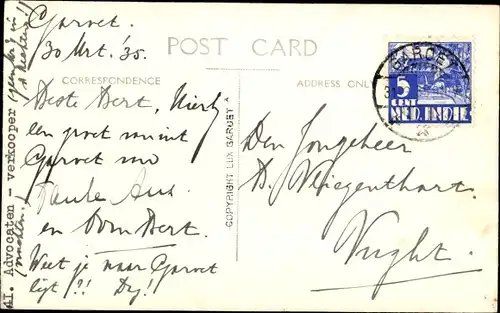 Garoet.
30 Mrt. '35.
POST CARD
CORRESPONDENCE
ADDRESS ONLY
Beste Bert, Hierbij
een groet vanuit
Garoet van
Tante Aus.
en Oom Bert.
Weet je waar Garoet
ligt?! Dag!
41. Advocaten - verkooper
COPYRIGHT LUX GAROET
Den Jongeheer
B. Vliegenthart.
Vught.
GAROET
5
CENT
NED. INDIE